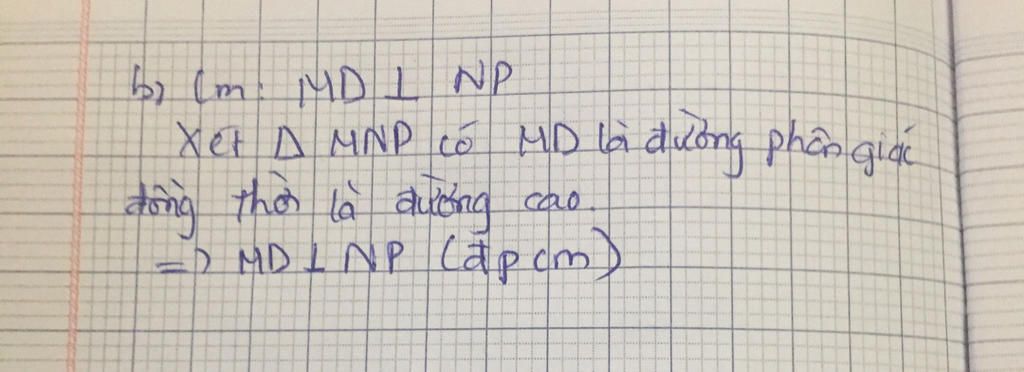 b) Cm: MD ⊥ NP
Xét Δ MNP có MD là đường phân giác
đồng thời là đường cao.
=> MD ⊥ NP (đpcm)